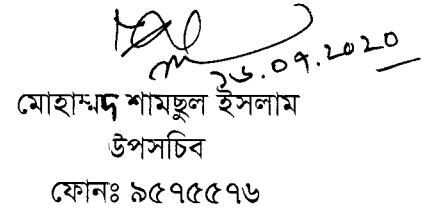 ২৬.০৭.২০২০
মোহাম্মদ শামছুল ইসলাম
উপসচিব
ফোনঃ ৯৫৭৫৫৭৬